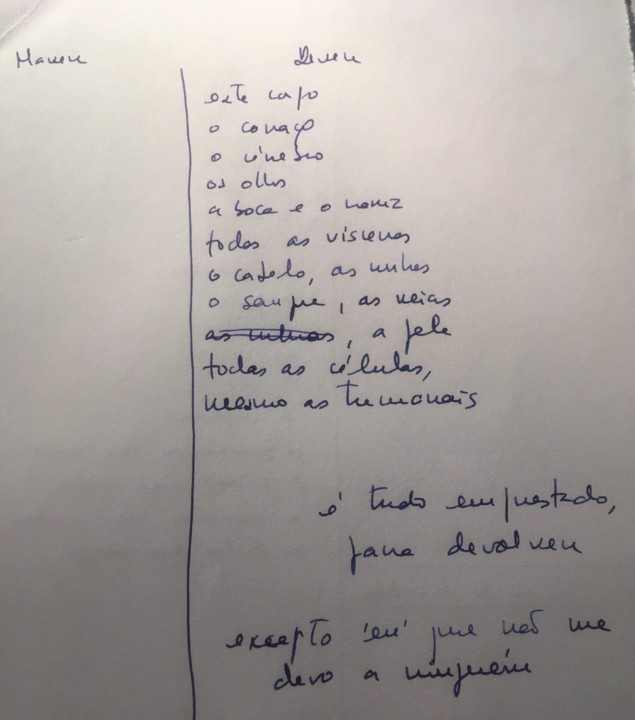 Haver Dever
este corpo
o coração
o cérebro
os olhos
a boca e o nariz
todas as vísceras
o cabelo, as unhas
o sangue, as veias
, a pele
todas as células,
mesmo as tumorais
é tudo emprestado,
para devolver
excepto 'eu' que não me
devo a ninguém